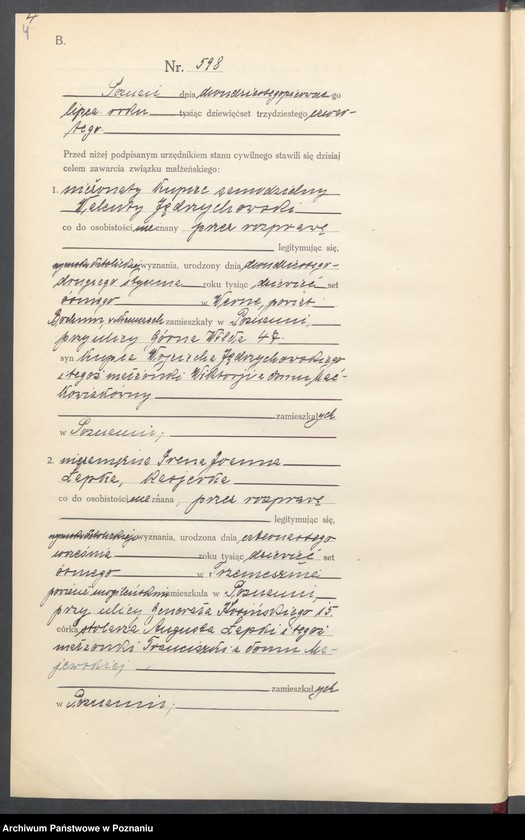 4
4
B.
Nr. 598
Poznań dnia dwudziestegopierwszego
lipca roku tysiąc dziewięćset trzydziestego czwar-
tego
Przed niżej podpisanym urzędnikiem stanu cywilnego stawili się dzisiaj
celem zawarcia związku małżeńskiego:
1. nieżonaty kupiec samodzielny
Walenty Jędrzychowski
co do osobistości nieznany, przez rozprawę
legitymując się,
rzymskokatolickiego wyznania, urodzony dnia dwudziestego-
drugiego stycznia roku tysiąc dziewięć set
ósmego w Werne, powiat
Bochum, w Niemczech zamieszkały w Poznaniu,
przy ulicy Górna Wilda 47.
syn kupca Wojciecha Jędrzychowskiego
i tegoż małżonki Wiktorji z domu
zamieszkałych
w Poznaniu;
2. niezamężna Irena Joanna
Lepka, kasjerka
co do osobistości nieznana, przez rozprawę
legitymując się,
rzymskokatolickiego wyznania, urodzona dnia czternastego
września roku tysiąc dziewięć set
ósmego w Trzemesznie
powiat mogileńskim zamieszkała w Poznaniu,
przy ulicy Generała Kosińskiego 15
córka stolarza Augusta Lepki i tegoż
małżonki Franciszki z domu Ma-
jewskiej,
zamieszkałych
w Poznaniu;
Archiwum Państwowe w Poznaniu